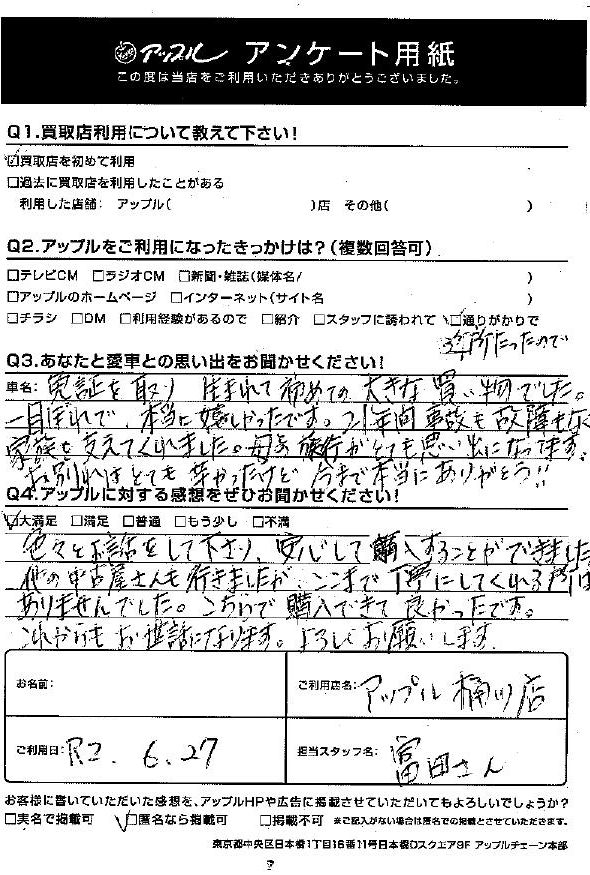 アップル アンケート用紙
この度は当店をご利用いただきありがとうございました。
Q1.買取店利用について教えて下さい!
☑買取店を初めて利用
□過去に買取店を利用したことがある
利用した店舗: アップル( )店 その他( )
Q2.アップルをご利用になったきっかけは?(複数回答可)
□テレビCM □ラジオCM □新聞・雑誌(媒体名/ )
□アップルのホームページ □インターネット(サイト名 )
□チラシ □DM □利用経験があるので □紹介 □スタッフに誘われて ☑通りがかりで
近所だったので
Q3.あなたと愛車との思い出をお聞かせください!
車名: 免許を取り 生まれて初めての大きな買い物でした。
一目ぼれで、本当に嬉しかったです。21年間事故も故障もなく
家族を支えてくれました。母との旅行がとても思い出になってます。
お別れはとても辛かったけど 今まで本当にありがとう!!
Q4.アップルに対する感想をぜひお聞かせください!
☑大満足 □満足 □普通 □もう少し □不満
色々とお話をして下さり、安心して購入することができました
他の中古屋さんも行きましたが、ここまで丁寧にしてくれる所は
ありませんでした。こちらで購入できて良かったです。
これからもお世話になります。よろしくお願いします
お名前:
ご利用店名: アップル桶川店
ご利用日: R2. 6.27
担当スタッフ名: 富田さん
お客様に書いていただいた感想を、アップルHPや広告に掲載させていただいてもよろしいでしょうか?
□実名で掲載可 ☑匿名なら掲載可 □掲載不可 ※ご記入がない場合は匿名での掲載とさせていただきます。
東京都中央区日本橋1丁目16番11号日本橋Dスクエア9F アップルチェーン本部